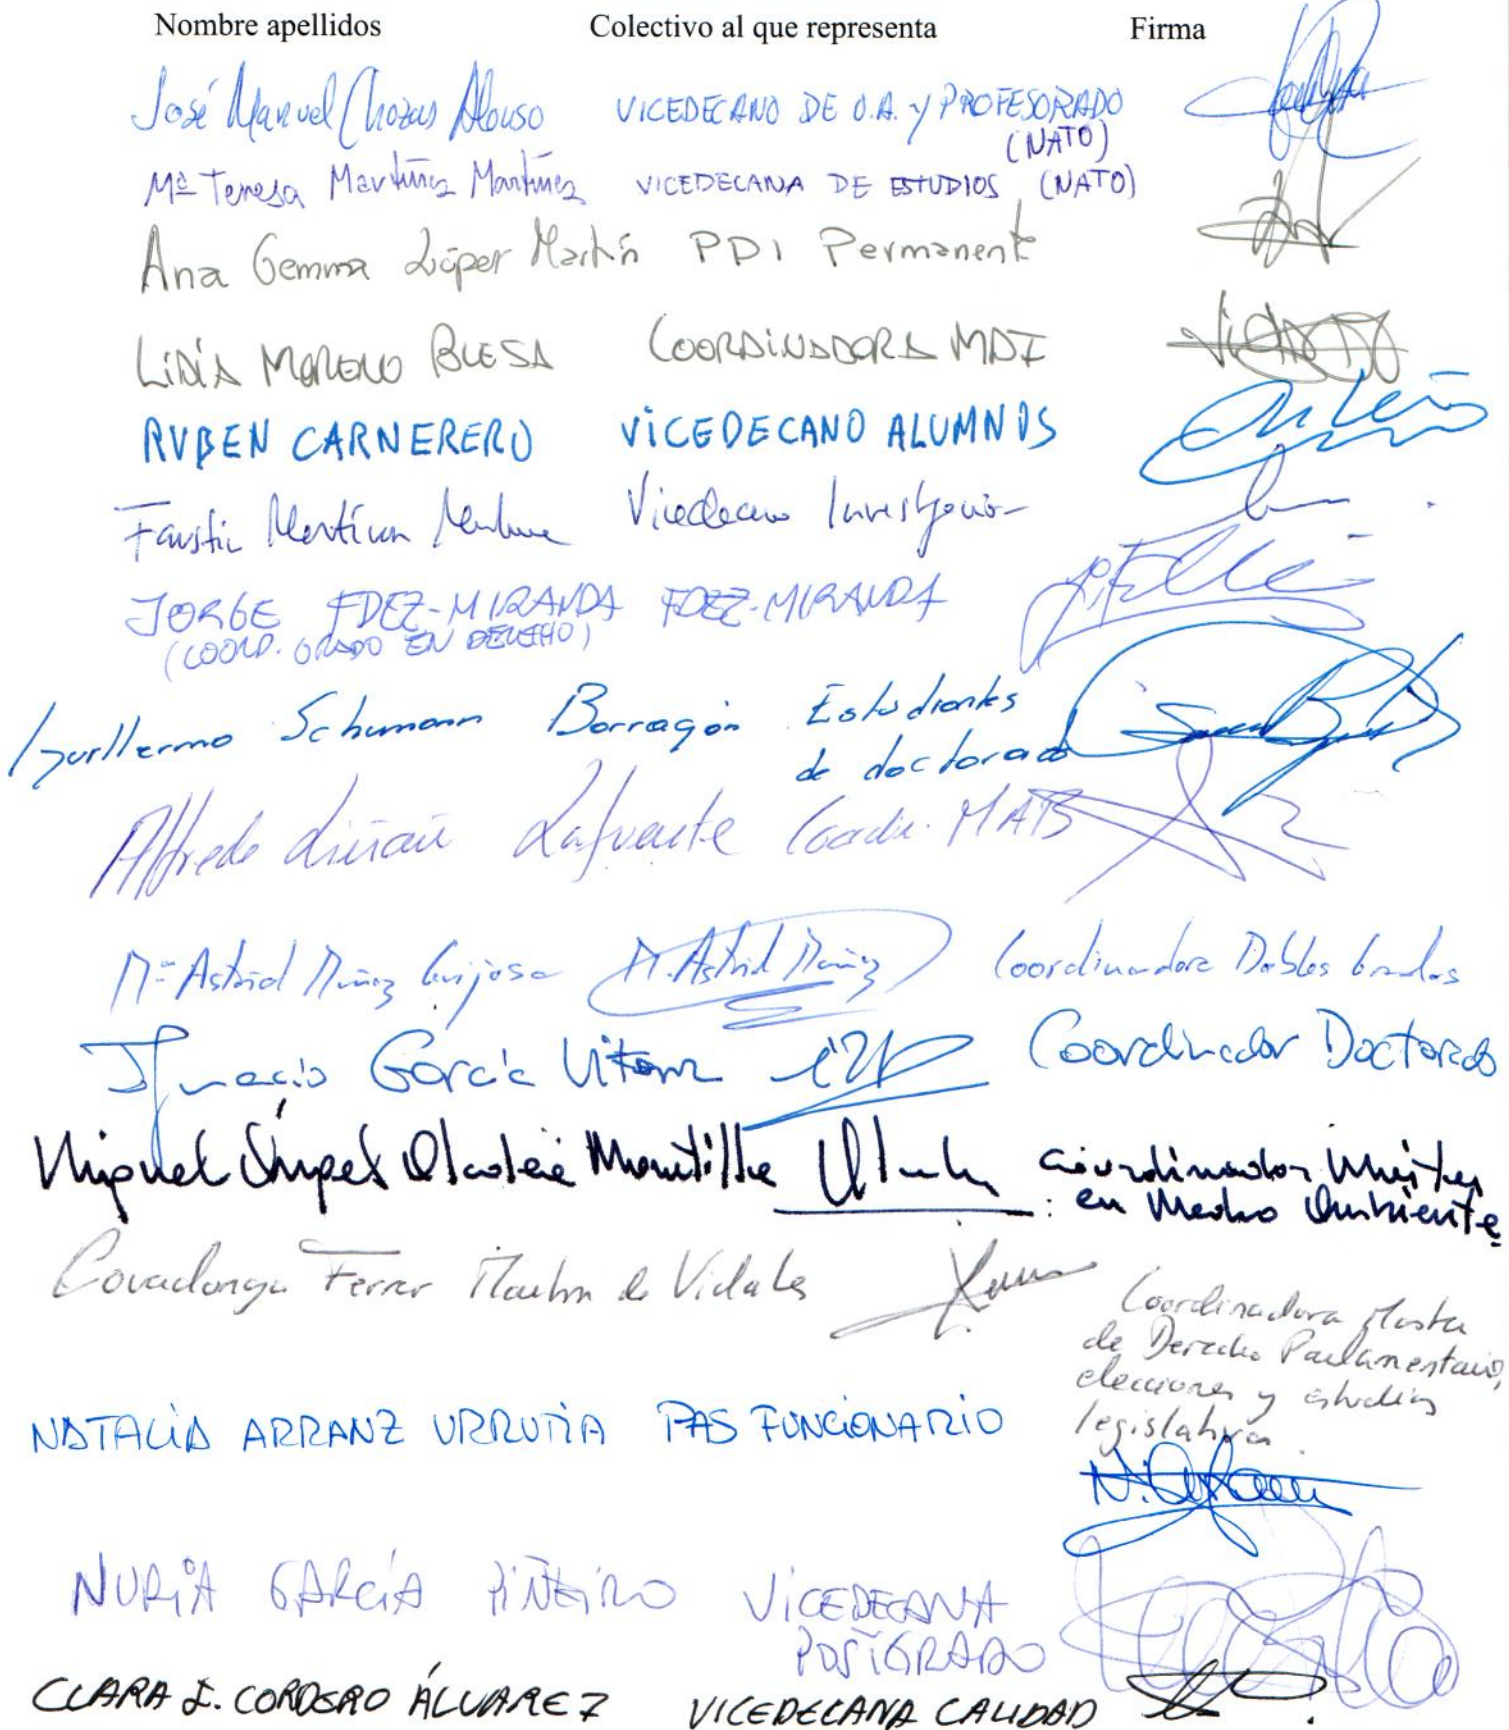 Nombre apellidos Colectivo al que representa Firma
José Manuel Chozas Alonso VICEDECANO DE O.A. y PROFESORADO
(NATO)
Mª Teresa Martínez Martínez VICEDECANA DE ESTUDIOS (NATO)
Ana Gemma López Martín PDI Permanente
LIDIA MORENO BLESA COORDINADORA MDI
RUBEN CARNERERO VICEDECANO ALUMNOS
Faustino Martínez Vicedecano Investigación
JORGE FDEZ-MIRANDA FDEZ-MIRANDA
(COORD. GRADO EN DERECHO)
Guillermo Schumann Barragán Estudiantes
de doctorado
Alfredo Liñán Lafuente Coordi. MAB
Mª Astrid Muñoz Guijosa M. Astrid Muñoz Coordinadora Dobles Grados
Ignacio García Vitoria Coordinador Doctorado
Miguel Ángel Montilla Coordinador Máster
en Medio Ambiente
Covadonga Ferrer Martín de Vidales
Coordinadora Master
de Derecho Parlamentario,
elecciones y estudios
legislativos
NATALIA ARRANZ URRUTIA PAS FUNCIONARIO
NURIA GARCÍA PIÑEIRO VICEDECANA
POSTGRADO
CLARA I. CORDERO ÁLVAREZ VICEDECANA CALIDAD